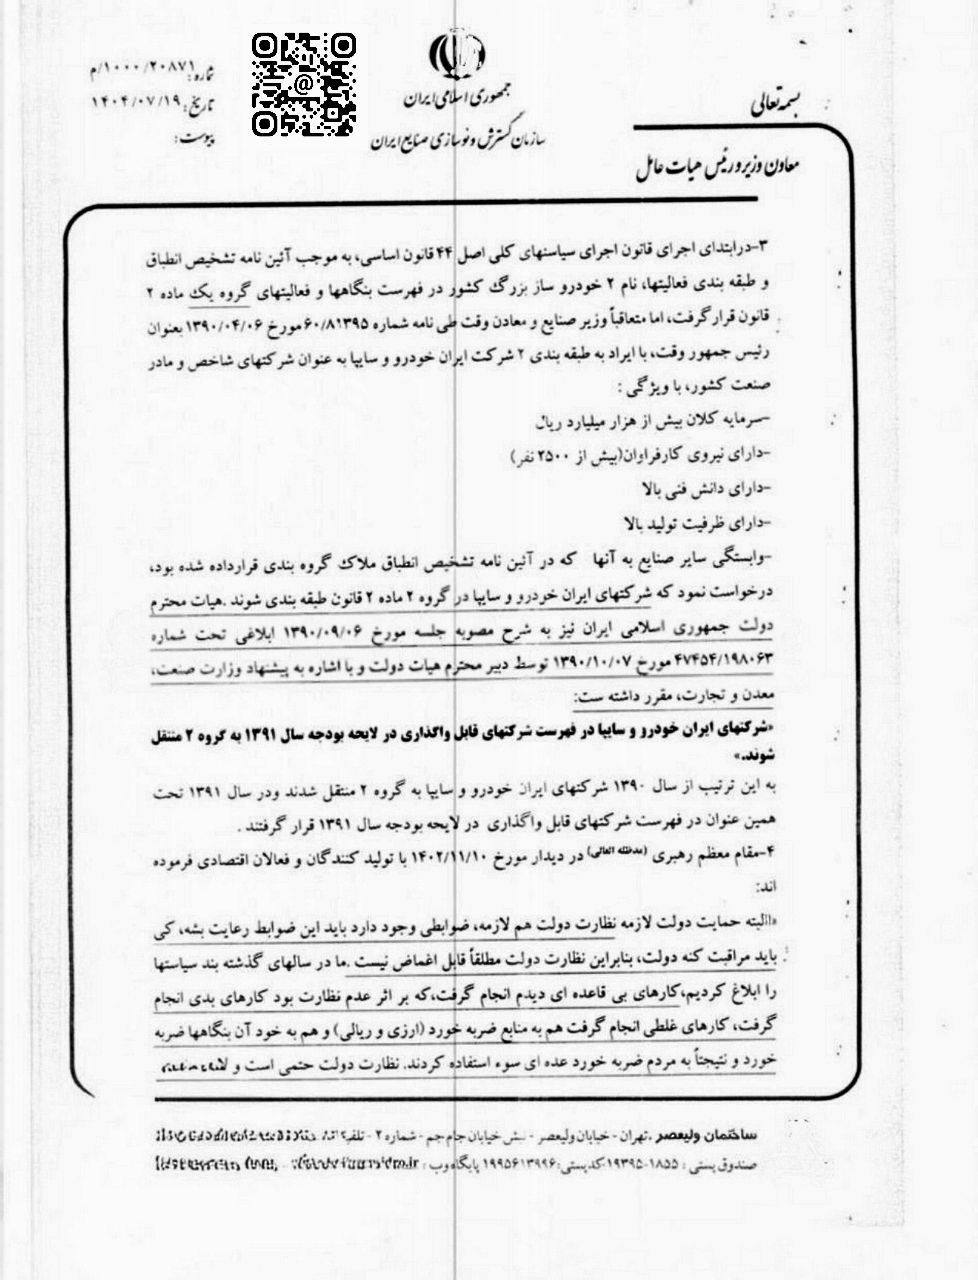 بسمه تعالی
جمهوری اسلامی ایران
سازمان گسترش و نوسازی صنایع ایران
معاون وزیر و رئیس هیات عامل
شماره: ۱۰۰۰/۲۰۸۷۱/م
تاریخ: ۱۴۰۴/۰۷/۱۹
پیوست:
@
۳-درابتدای اجرای قانون اجرای سیاستهای کلی اصل ۴۴ قانون اساسی، به موجب آئین نامه تشخیص انطباق
و طبقه بندی فعالیتها، نام ۲ خودرو ساز بزرگ کشور در فهرست بنگاهها و فعالیتهای گروه یک ماده ۲
قانون قرار گرفت، اما متعاقباً وزیر صنایع و معادن وقت طی نامه شماره ۶۰/۸۱۳۹۵ مورخ ۱۳۹۰/۰۴/۰۶ بعنوان
رئیس جمهور وقت، با ایراد به طبقه بندی ۲ شرکت ایران خودرو و سایپا به عنوان شرکتهای شاخص و مادر
صنعت کشور، با ویژگی :
-سرمایه کلان بیش از هزار میلیارد ریال
-دارای نیروی کارفراوان(بیش از ۲۵۰۰ نفر)
-دارای دانش فنی بالا
-دارای ظرفیت تولید بالا
-وابستگی سایر صنایع به آنها که در آئین نامه تشخیص انطباق ملاک گروه بندی قرارداده شده بود،
درخواست نمود که شرکتهای ایران خودرو و سایپا در گروه ۲ ماده ۲ قانون طبقه بندی شوند .هیات محترم
دولت جمهوری اسلامی ایران نیز به شرح مصوبه جلسه مورخ ۱۳۹۰/۰۹/۰۶ ابلاغی تحت شماره
۴۷۴۵۴/۱۹۸۰۶۳ مورخ ۱۳۹۰/۱۰/۰۷ توسط دبیر محترم هیات دولت و با اشاره به پیشنهاد وزارت صنعت،
معدن و تجارت، مقرر داشته ست:
«شرکتهای ایران خودرو و سایپا در فهرست شرکتهای قابل واگذاری در لایحه بودجه سال ۱۳۹۱ به گروه ۲ منتقل
شوند.»
به این ترتیب از سال ۱۳۹۰ شرکتهای ایران خودرو و سایپا به گروه ۲ منتقل شدند ودر سال ۱۳۹۱ تحت
همین عنوان در فهرست شرکتهای قابل واگذاری در لایحه بودجه سال ۱۳۹۱ قرار گرفتند .
۴-مقام معظم رهبری (مدظله العالی) در دیدار مورخ ۱۴۰۲/۱۱/۱۰ با تولید کنندگان و فعالان اقتصادی فرموده
اند:
«البته حمایت دولت لازمه نظارت دولت هم لازمه، ضوابطی وجود دارد باید این ضوابط رعایت بشه، کی
باید مراقبت کنه دولت، بنابراین نظارت دولت مطلقاً قابل اغماض نیست .ما در سالهای گذشته بند سیاستها
را ابلاغ کردیم،کارهای بی قاعده ای دیدم انجام گرفت،که بر اثر عدم نظارت بود کارهای بدی انجام
گرفت، کارهای غلطی انجام گرفت هم به منابع ضربه خورد (ارزی و ریالی) و هم به خود آن بنگاهها ضربه
خورد و نتیجتاً به مردم ضربه خورد عده ای سوء استفاده کردند. نظارت دولت حتمی است و
ساختمان ولیعصر .تهران - خیابان ولیعصر - نبش خیابان جام جم - شماره ۲ - تلفن:
صندوق پستی : ۱۸۵۵-۱۹۳۹۵ کدپستی: ۱۹۹۵۶۱۳۹۹۶ پایگاه وب :